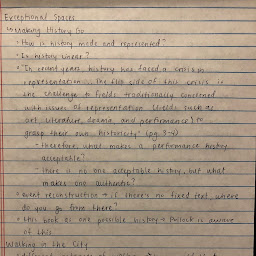 Exceptional Spaces
Making History Go
• How is history made and represented?
• Is history linear?
• "In recent years history has faced a crisis in
representation... The flip side of this crisis is
the challenge to fields traditionally concerned
with issues of representation (fields such as
art, literature, drama, and performance) to
grasp their own historicity" (pg. 3-4)
- Therefore, what makes a performance history
acceptable?
- There is no one acceptable history, but what
makes one authentic?
• event reconstruction → if there's no fixed text, where
do you go from there?
• this book as one possible history → Pollock is aware
of this
Walking in the City